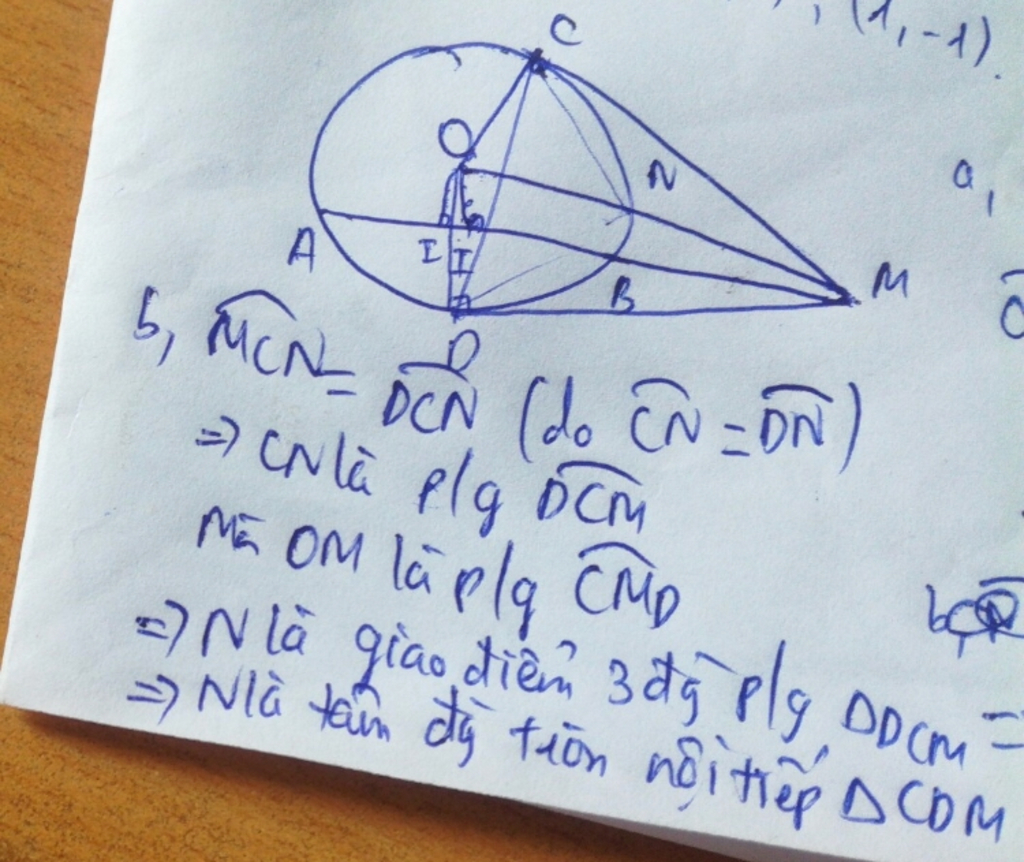 , (1, -1).
C
O
N
a,
A
I
I
B
M
D
b, MCN = DCN (do CN = DN)
=> CN là p/g DCM
Mà OM là p/g CMD
=> N là giao điểm 3 đg p/g ΔDCM =
=> N là tâm đg tròn nội tiếp ΔCDM